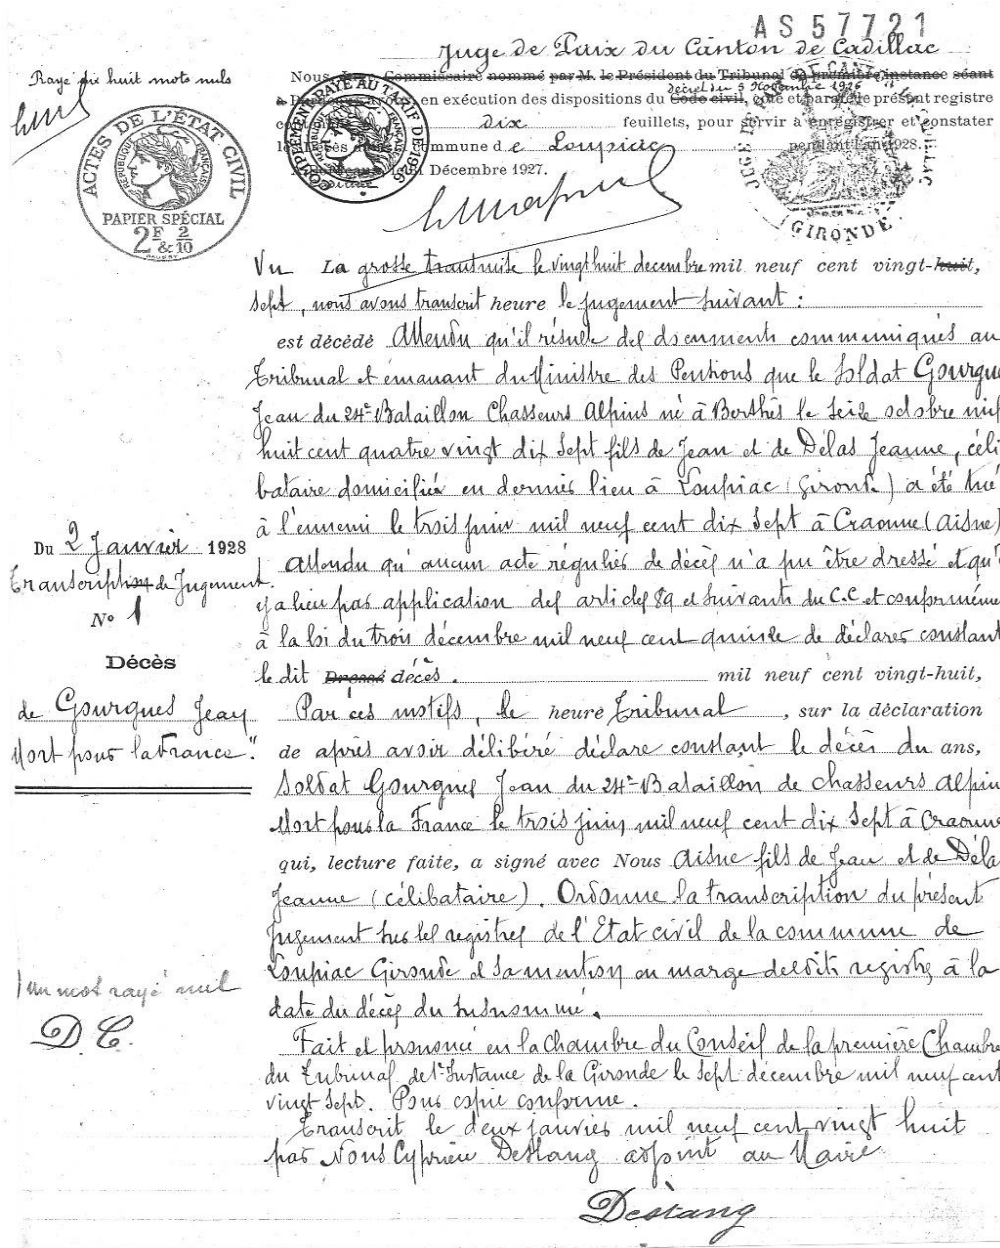 AS57721
Juge de Paix du Canton de Cadillac
Rayé dix huit mots nuls
Nous Commissaire nommé par M. le Président du Tribunal de première instance séant
décret du 5 Novembre 1926
à en exécution des dispositions du Code civil, coté et paraphé présent registre
dix feuillets, pour servir à enregistrer et constater
décès commune de Loupiac pendant l'an 1928.
Décembre 1927.
ACTES DE L'ÉTAT CIVIL
RÉPUBLIQUE FRANÇAISE
PAPIER SPÉCIAL
2F & 2/10
COMPLÉMENT PAYÉ AU TARIF DE
JUGE DE PAIX CANTON DE CADILLAC
GIRONDE
Vu La grosse transmise le vingt huit decembre mil neuf cent vingt-huit,
sept, nous avons transcrit heure le jugement suivant :
est décédé Attendu qu'il résulte des documents communiqués au
Tribunal et émanant du Ministre des Pensions que le soldat Gourgues
Jean du 24e Bataillon Chasseurs Alpins né à Berthès le seize octobre mil
huit cent quatre vingt dix sept fils de Jean et de Délas Jeanne, céli
bataire domicilié en dernier lieu à Loupiac (Gironde) a été tué
à l'ennemi le trois juin mil neuf cent dix sept à Craonne (Aisne)
Attendu qu'aucun acte régulier de décès n'a pu être dressé et qu'
y a lieu par application des articles 89 et suivants du C.C et conformémen
à la loi du trois décembre mil neuf cent quinze de déclarer constant
le dit Dressé décès. mil neuf cent vingt-huit,
Du 2 Janvier 1928
Transcription de Jugement.
No 1
Décès
de Gourgues Jean
Mort pour la France."
Par ces motifs, le heure Tribunal, sur la déclaration
de après avoir délibéré déclare constant le décès du ans,
Soldat Gourgues Jean du 24e Bataillon de chasseurs Alpin
Mort pour la France le trois juin mil neuf cent dix sept à Craonne
qui, lecture faite, a signé avec Nous Aisne fils de Jean et de Déla
Jeanne (célibataire). Ordonne la transcription du présent
Jugement sur les registres de l'Etat civil de la commune de
Loupiac Gironde et sa mention en marge desdits registres à la
date du décès du susnommé.
1 un mot rayé nul
D. C.
Fait et prononcé en la Chambre du Conseil de la première Chambre
du Tribunal de 1e Instance de la Gironde le sept décembre mil neuf cent
vingt sept. Pour copie conforme.
Transcrit le deux janvier mil neuf cent vingt huit
par Nous Cyprien Destang adjoint au Maire
Destang